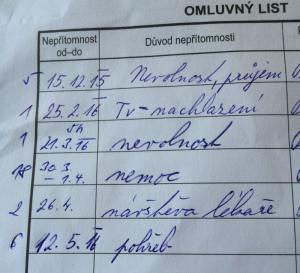 OMLUVNÝ LIST
Nepřítomnost od–do Důvod nepřítomnosti
5 15.12.15 Nevolnost, průjem
1 25.2.16 Tv-nachlazení
1 5h 21.3.16 nevolnost
18 30.3. – 1.4. nemoc
2 26.4. návštěva lékaře
6 12.5.16 pohřeb